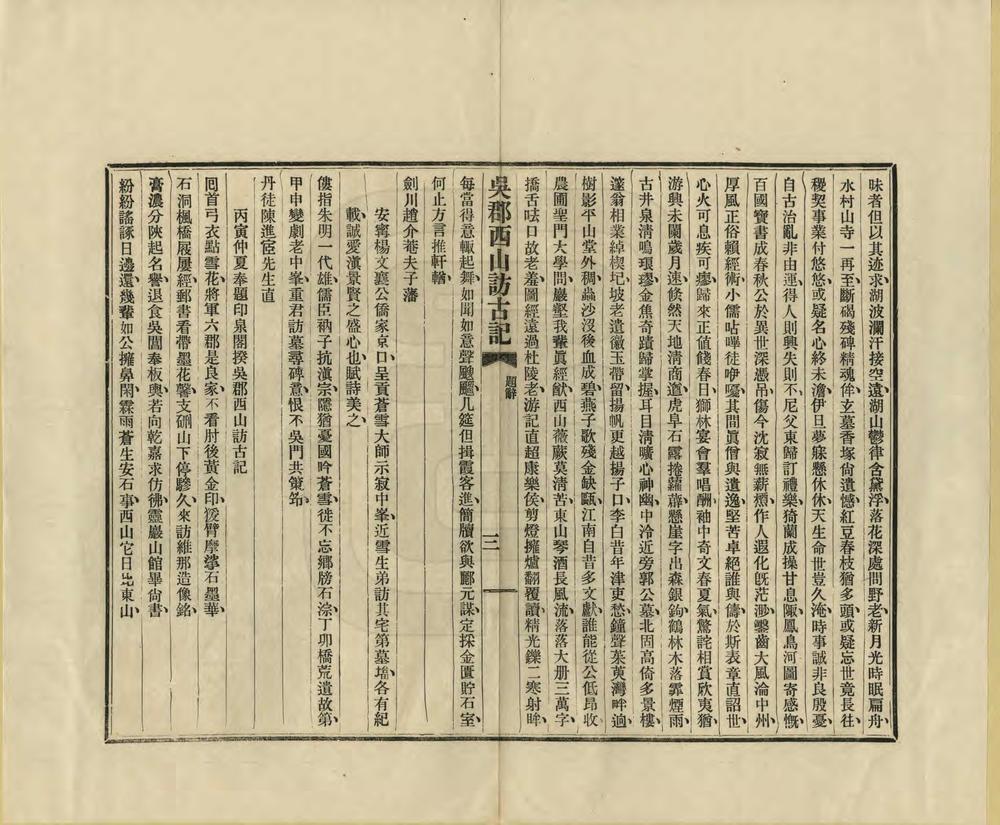 味者但以其迹求湖波瀾汗接空遠湖山鬱律含黛浮落花深處問野老新月光時眠扁舟
水村山寺一再至斷碣殘碑精魂侔玄墓香塚尙遺憾紅豆春枝猶多頭或疑忘世竟長往
稷契事業付悠悠或疑名心終未澹伊旦夢寐懸休休天生命世豈久淹時事誠非良殷憂
自古治亂非由運得人則興失則不尼父東歸訂禮樂猗蘭成操甘息陬鳳鳥河圖寄感慨
百國寶書成春秋公於異世深憑吊傷今沈寂無薪槱作人遐化旣茫溯鑿齒大風淪中州
厚風正俗賴經術小儒呫嗶徒咿嚘其間眞僧與遺逸堅苦卓絕誰與儔於斯表章直詔世
心火可息疾可瘳歸來正値餞春日獅林宴會羣唱酬袖中奇文春夏氣驚詫相賞欣夷猶
游興未闌歲月遠倐然天地淸商遒虎阜石露捲蘿薜懸崖字出森銀鉤鶴林木落霏煙雨
古井泉淸鳴琅璆金焦奇蹟歸掌握耳目淸曠心神幽中泠近旁郭公墓北固高倚多景樓
蓬翁相業綽楔圮坡老遺徽玉帶留揚帆更越揚子口李白昔年津吏愁鐘聲茱萸灣畔過
樹影平山堂外稠蟲沙沒後血成碧燕子歌殘金缺甌江南自昔多文獻誰能從公低昂收
農圃聖門大學問巖壑我輩眞經猷西山薇蕨莫淸苦東山琴酒長風流落落大册三萬字
撟舌呿口故老羞圖經遠過杜陵老游記直超康樂侯剪燈擁爐翻覆讀精光鑠二寒射眸
吳郡西山訪古記
題辭
三
每當得意輒起舞如聞如意聲颼飀几筵但揖霞客進簡牘欲與酈元謀定採金匱貯石室
何止方言推軒輶
劍川趙介菴夫子藩
安寧楊文襄公僑家京口呈貢蒼雪大師示寂中峯近雪生弟訪其宅第墓墖各有紀
載誠愛滇景賢之盛心也賦詩美之
僂指朱明一代雄儒臣衲子抗滇宗隱猶憂國吟蒼雪徙不忘鄕牓石淙丁卯橋荒遺故第
甲申變劇老中峯重君訪墓尋碑意恨不吳門共策筇
丹徒陳進宧先生直
丙寅仲夏奉題印泉閣揆吳郡西山訪古記
囘首弓衣點雪花將軍六郡是良家不看肘後黃金印猨臂摩挲石墨華
石洞楓橋屐屢經郵書看帶墨花馨支硎山下停驂久來訪維那造像銘
膏濃分陝起名譽退食吳閶奉板輿若向乾嘉求仿彿靈巖山館畢尙書
紛紛謠諑日邊還幾輩如公擁鼻閑霖雨蒼生安石事西山它日比東山